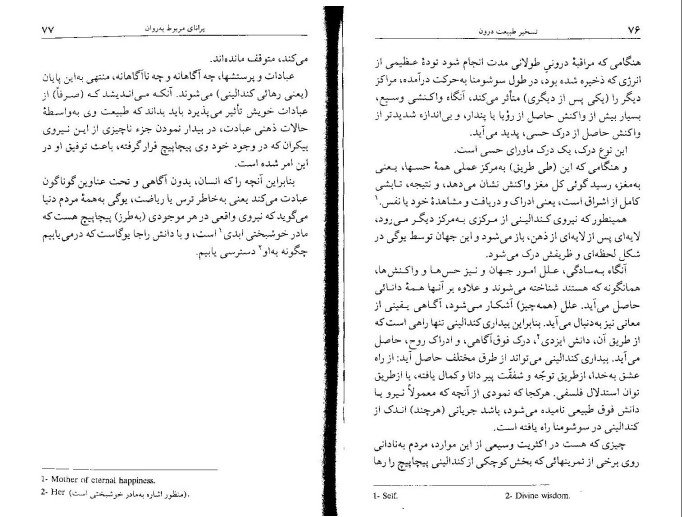 ۷۶
تسخیر طبیعت درون
هنگامی که مراقبهٔ درونی طولانی مدت انجام شود تودهٔ عظیمی از
انرژی که ذخیره شده بود، در طول سوشومنا به‌حرکت درآمده، مراکز
دیگر را (یکی پس از دیگری) متأثر می‌کند، آنگاه واکنشی وسیع،
بسیار بیش از واکنش حاصل از رؤیا یا پندار، و بی‌اندازه شدیدتر از
واکنش حاصل از درک حسی، پدید می‌آید.
این نوع درک، یک درک ماورای حسی است.
و هنگامی که این (طی طریق) به‌مرکز عملی همهٔ حسها، یعنی
به‌مغز، رسید گوئی کل مغز واکنش نشان می‌دهد، و نتیجه، تابشی
کامل از اشراق است، یعنی ادراک و دریافت و مشاهدهٔ خود یا نفس.۱
همینطور که نیروی کندالینی از مرکزی به‌مرکز دیگر می‌رود،
لایه‌ای پس از لایه‌ای از ذهن، باز می‌شود و این جهان توسط یوگی در
شکل لحظه‌ای و ظریفش درک می‌شود.
آنگاه به‌سادگی، علل امور جهان و نیز حس‌ها و واکنش‌ها،
همانگونه که هستند شناخته می‌شوند و علاوه بر آنها همهٔ دانائی
حاصل می‌آید. علل (همه‌چیز) آشکار می‌شود، آگاهی یقینی از
معانی نیز به‌دنبال می‌آید. بنابراین بیداری کندالینی تنها راهی است که
از طریق آن، دانش ایزدی۲، درک فوق‌آگاهی، و ادراک روح، حاصل
می‌آید. بیداری کندالینی می‌تواند از طرق مختلف حاصل آید: از راه
عشق به‌خدا، ازطریق توجّه و شفقّت پیر دانا و کمال یافته، یا ازطریق
توان استدلال فلسفی. هرکجا که نمودی از آنچه که معمولاً نیرو یا
دانش فوق طبیعی نامیده می‌شود، باشد جریانی (هرچند) اندک از
کندالینی در سوشومنا راه یافته است.
چیزی که هست در اکثریت وسیعی از این موارد، مردم به‌نادانی
روی برخی از تمرینهائی که بخش کوچکی از کندالینی پیچاپیچ را رها
1- Self. 2- Divine wisdom.
پرانای مربوط به‌روان
۷۷
می‌کند، متوقف مانده‌اند.
عبادات و پرستشها، چه آگاهانه و چه ناآگاهانه، منتهی به‌این پایان
(یعنی رهائی کندالینی) می‌شوند. آنکه می‌اندیشد که (صرفاً) از
عبادات خویش تأثیر می‌پذیرد باید بداند که طبیعت وی به‌واسطهٔ
حالات ذهنی عبادت، در بیدار نمودن جزء ناچیزی از این نیروی
بیکران که در وجود خود وی پیچاپیچ قرار گرفته، باعث توفیق او در
این امر شده است.
بنابراین آنچه را که انسان، بدون آگاهی و تحت عناوین گوناگون
عبادت می‌کند یعنی به‌خاطر ترس یا ریاضت، یوگی به‌همهٔ مردم دنیا
می‌گوید که نیروی واقعی در هر موجودی (به‌طرز) پیچاپیچ هست که
مادر خوشبختی ابدی۱ است، و با دانش راجا یوگاست که درمی‌یابیم
چگونه به‌او۲ دسترسی یابیم.
1- Mother of eternal happiness.
2- Her (منظور اشاره به‌مادر خوشبختی است).